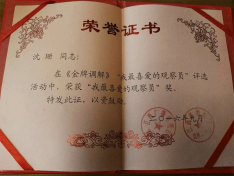 荣誉证书
沈 同志：
在《金牌调解》“我最喜爱的观察员”评选
活动中，荣获“我最喜爱的观察员”奖。
特发此证，以资鼓励。
二〇一六年